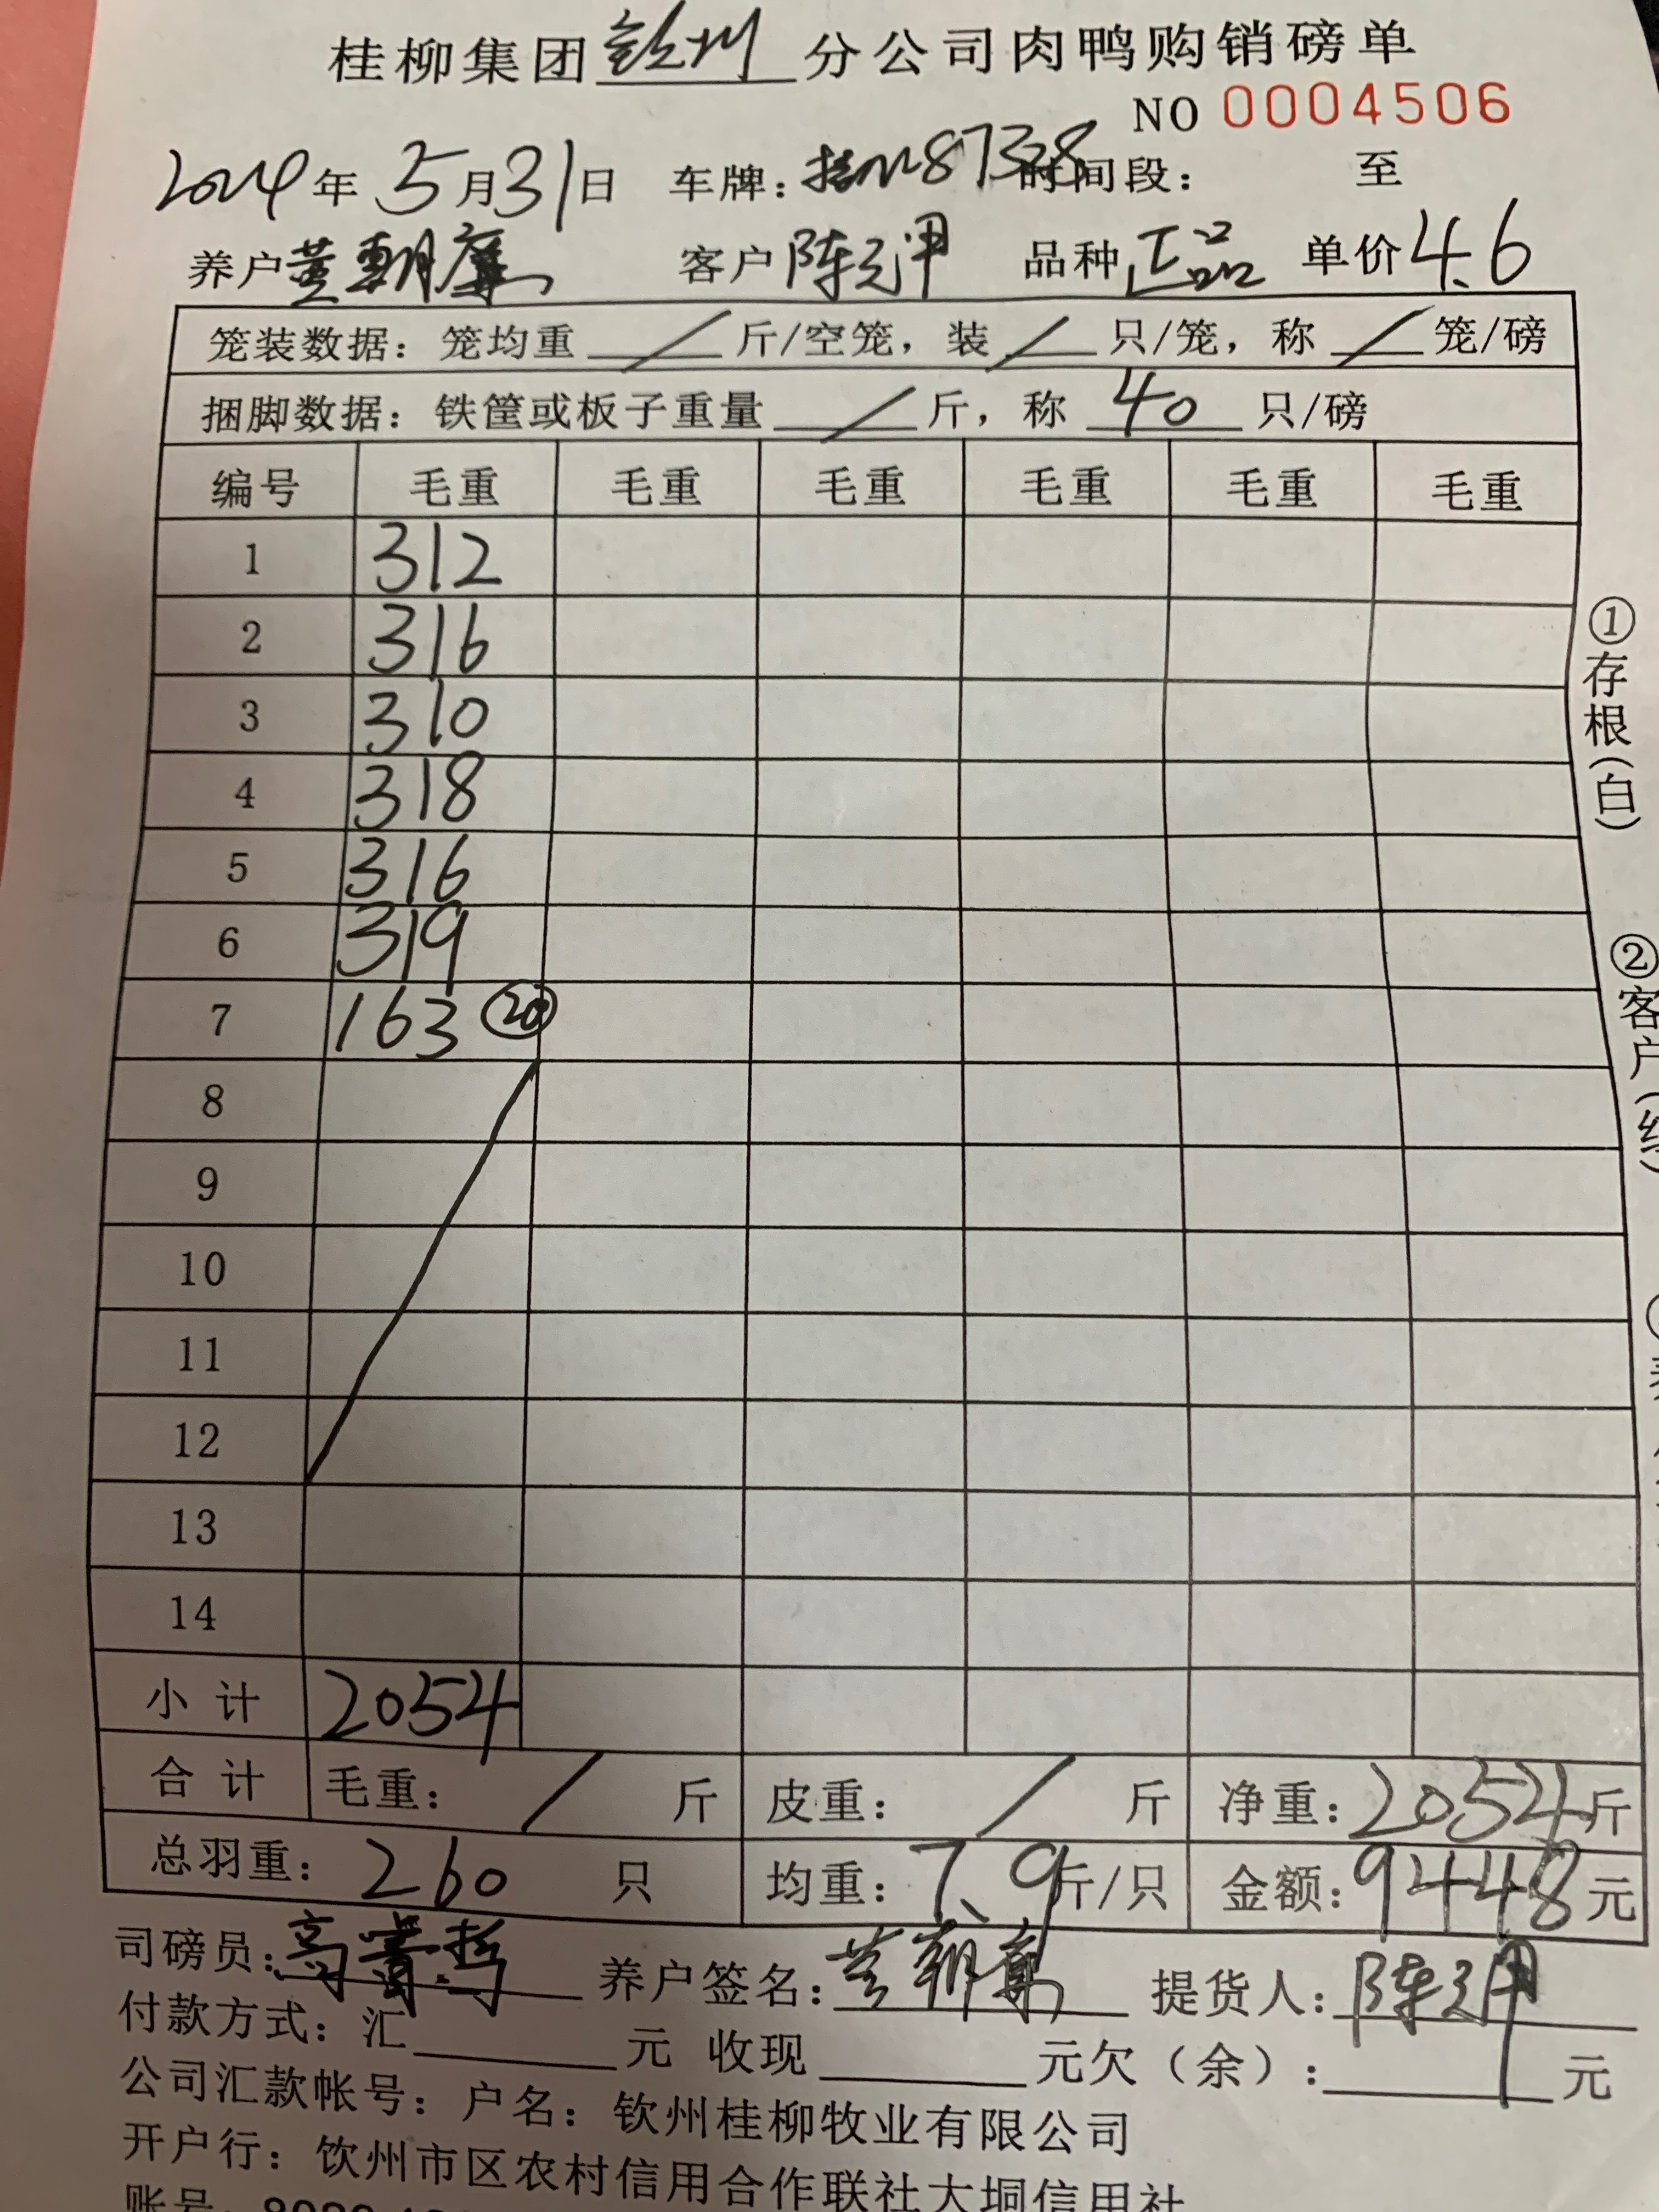 桂柳集团钦州分公司肉鸭购销磅单
NO 0004506
2024年5月31日 车牌：桂N87328 时间段： 至
养户黄朝 客户陈 品种正品 单价4.6
笼装数据：笼均重/斤/空笼，装/只/笼，称/笼/磅
捆脚数据：铁筐或板子重量/斤，称40只/磅
编号 毛重 毛重 毛重 毛重 毛重 毛重
1 312
2 316
3 310
4 318
5 316
6 319
7 163 ⑳
8
9
10
11
12
13
14
小计 2054
合计 毛重：/斤 皮重：/斤 净重：2054斤
总羽重：260只 均重：7.9斤/只 金额：9448元
司磅员：高 养户签名：黄朝 提货人：陈
付款方式：汇 元 收现 元欠（余）： 元
公司汇款帐号：户名：钦州桂柳牧业有限公司
开户行：钦州市区农村信用合作联社大垌信用社
账号：
①存根(白)
②客户(红)